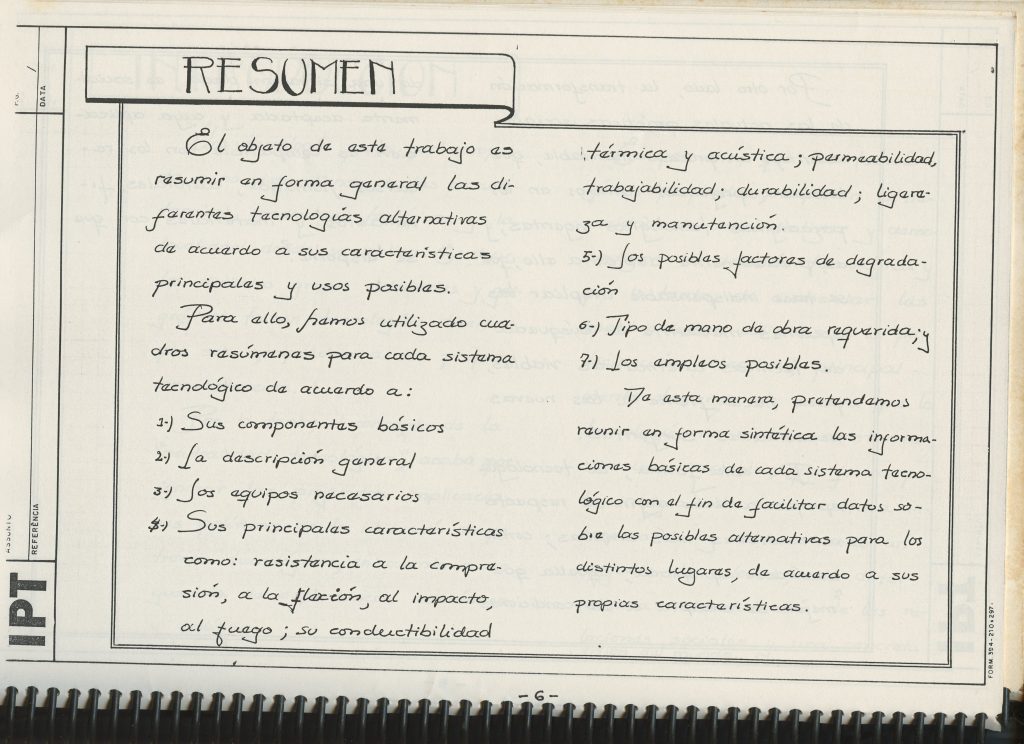 RESUMEN
El objeto de este trabajo es
resumir en forma general las di-
ferentes tecnologías alternativas
de acuerdo a sus características
principales y usos posibles.
Para ello, hemos utilizado cua-
dros resúmenes para cada sistema
tecnológico de acuerdo a:
1-) Sus componentes básicos
2-) La descripción general
3-) Los equipos necesarios
4-) Sus principales características
como: resistencia a la compre-
sión, a la flexión, al impacto,
al fuego; su conductibilidad
térmica y acústica; permeabilidad,
trabajabilidad; durabilidad; ligere-
za y manutención.
5-) Los posibles factores de degrada-
ción
6-) Tipo de mano de obra requerida; y
7-) Los empleos posibles.
De esta manera, pretendemos
reunir en forma sintética las informa-
ciones básicas de cada sistema tecno-
lógico con el fin de facilitar datos so-
bre las posibles alternativas para los
distintos lugares, de acuerdo a sus
propias características.
DATA
ASSUNTO
REFERÊNCIA
IPT
FORM. 394-210x297-
-6-